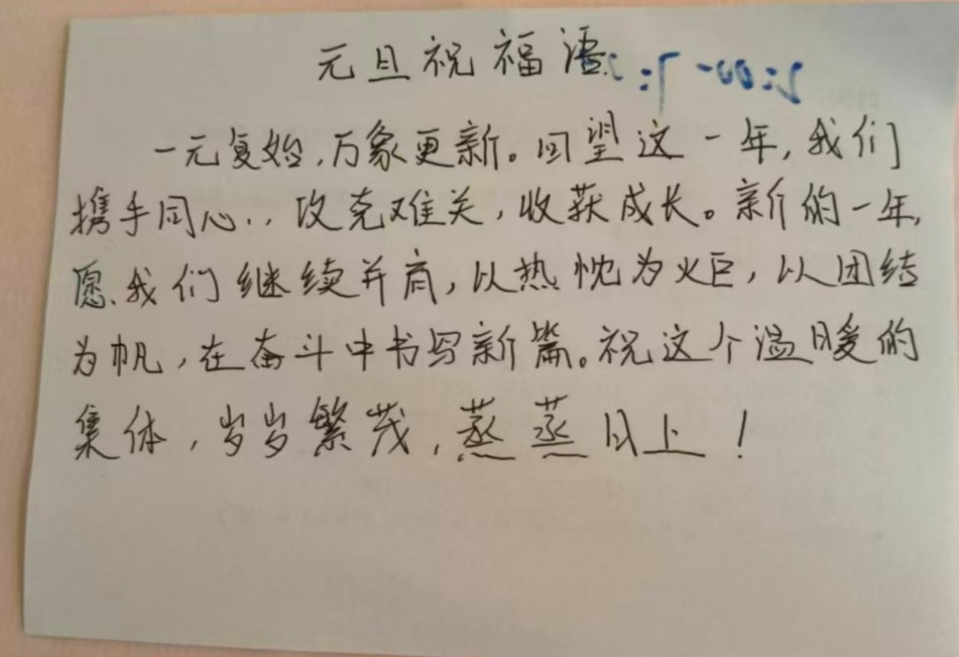 元旦祝福语
一元复始,万象更新。回望这一年,我们
携手同心,攻克难关,收获成长。新的一年,
愿我们继续并肩,以热忱为火巨,以团结
为帆,在奋斗中书写新篇。祝这个温暖的
集体,岁岁繁茂,蒸蒸日上!